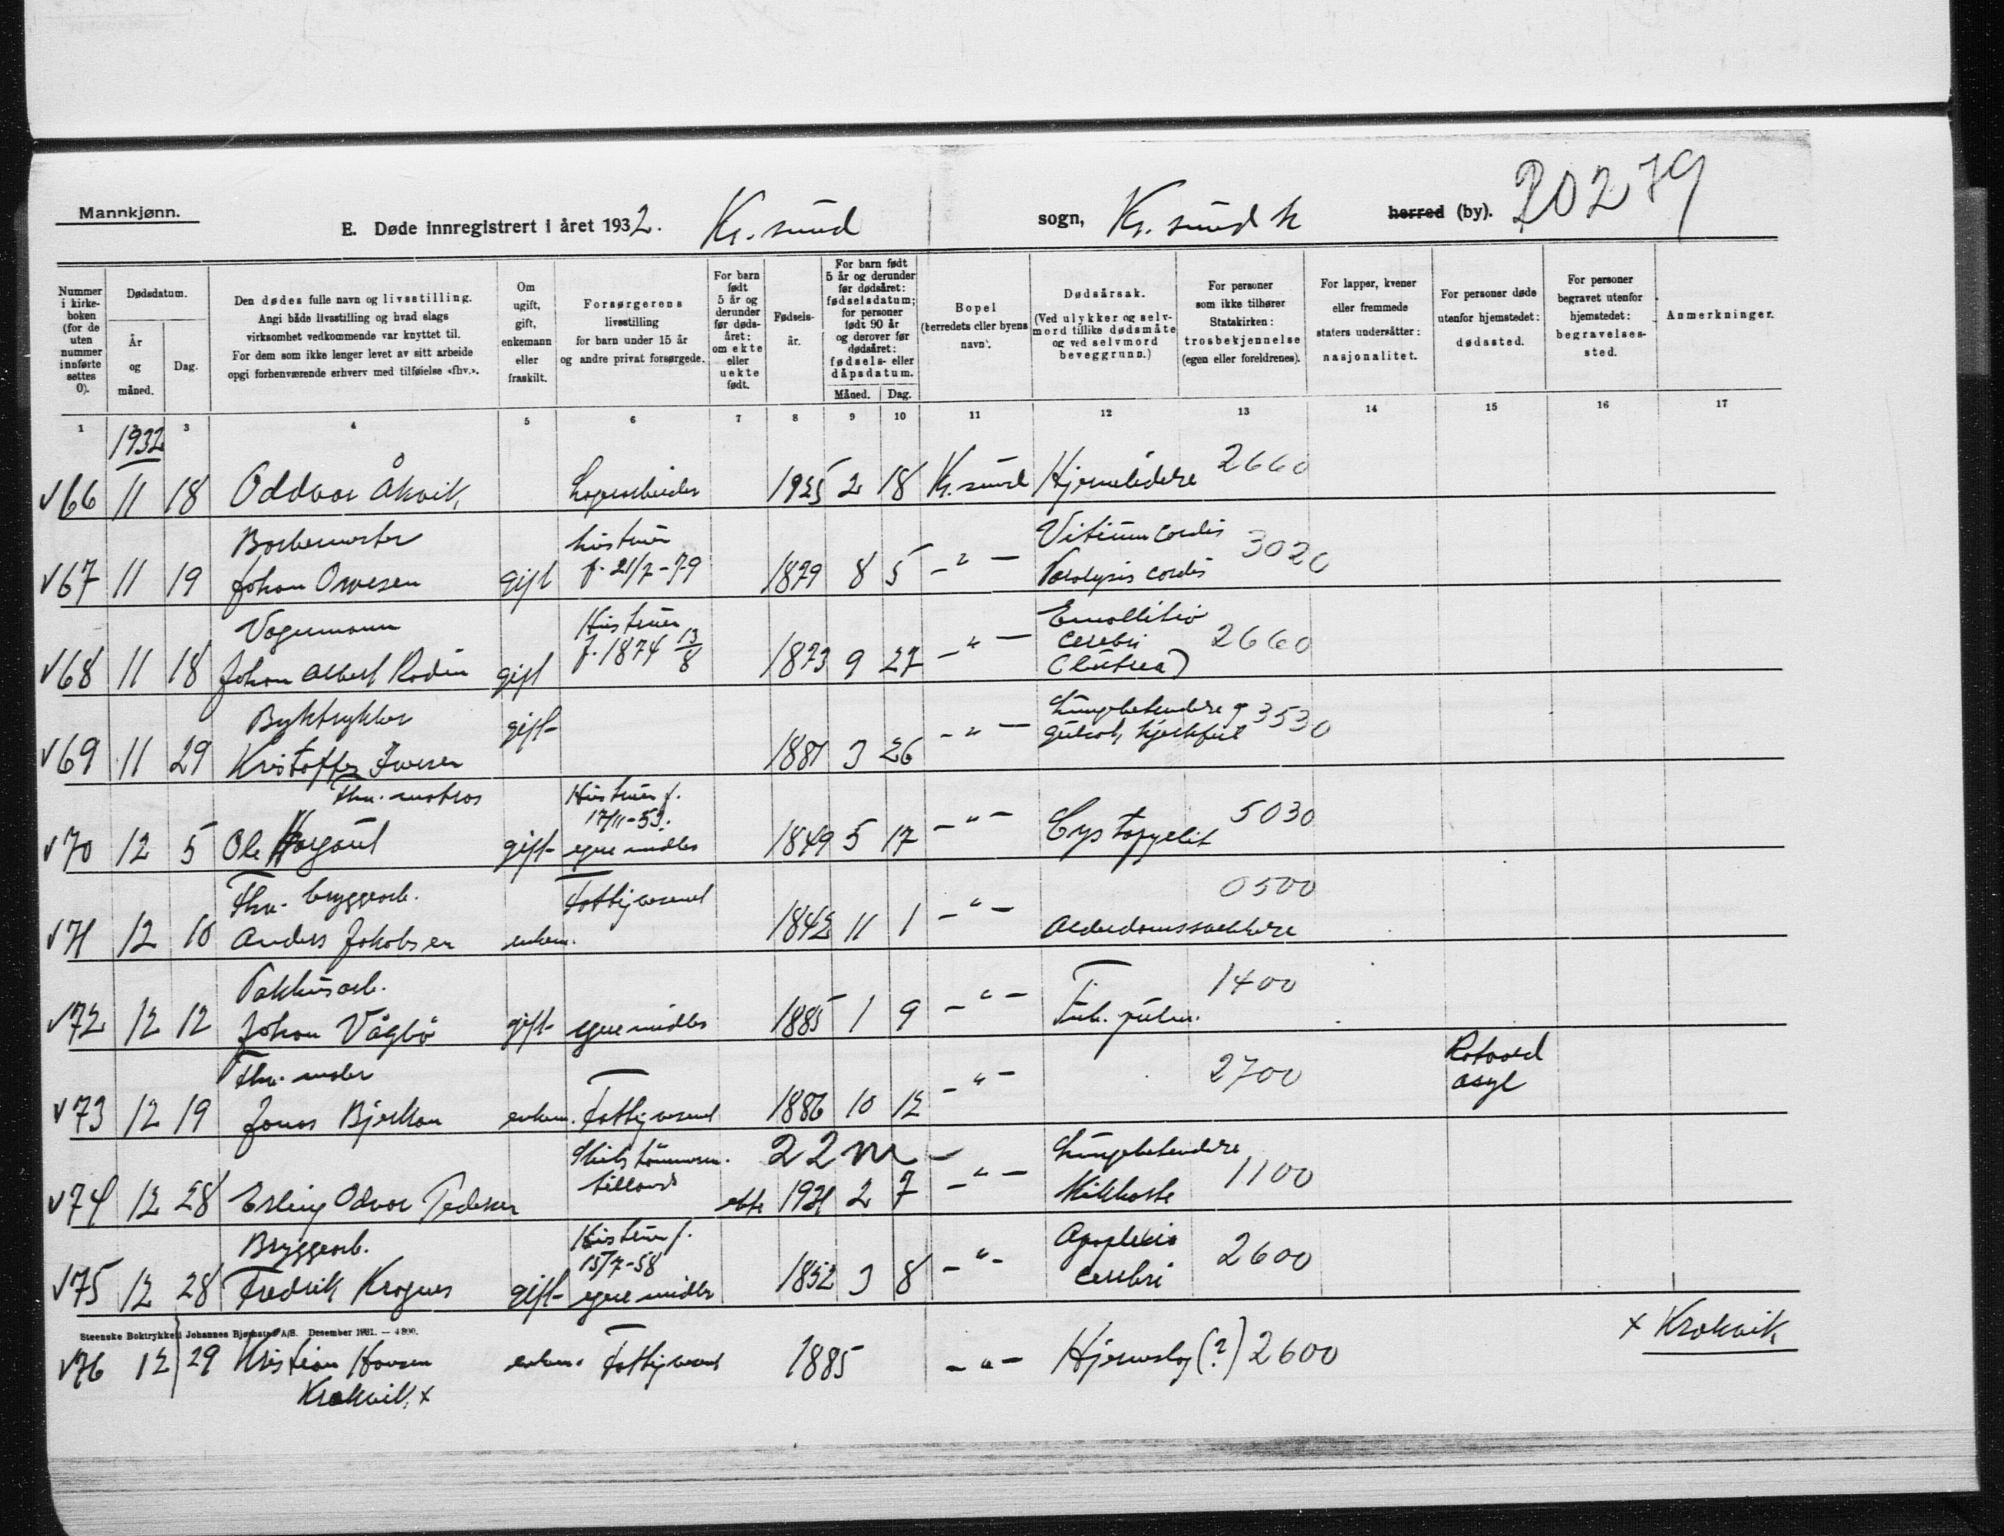 Mannkjønn.
E. Døde innregistrert i året 1932. Kr. sund sogn, Kr. sund N herred (by). 20279
Nummer i kirke-boken (for de uten nummer innførte settes 0).
Dødsdatum.
År og måned.
Dag.
Den dødes fulle navn og livsstilling.
Angi både livsstilling og hvad slags
virksomhet vedkommende var knyttet til.
For dem som ikke lenger levet av sitt arbeide
opgi forhenværende erhverv med tilføielse «fhv.».
Om ugift, gift, enkemann eller fraskilt.
Forsørgerens
livsstilling
for barn under 15 år
og andre privat forsørgede.
For barn født 5 år og derunder før døds-året: om ekte eller uekte født.
Fødsels-år.
For barn født
5 år og derunder
før dødsåret:
fødselsdatum;
for personer
født 90 år
og derover før
dødsåret:
fødsels- eller
dåpsdatum.
Måned. Dag.
Bopel
(herredets eller byens
navn).
Dødsårsak.
(Ved ulykker og selv-
mord tillike dødsmåte
og ved selvmord
beveggrunn.)
For personer
som ikke tilhører
Statskirken:
trosbekjennelse
(egen eller foreldrenes).
For lapper, kvener
eller fremmede
staters undersåtter:
nasjonalitet.
For personer døde
utenfor hjemstedet:
dødssted.
For personer
begravet utenfor
hjemstedet:
begravelses-
sted.
Anmerkninger.
1 3 4 5 6 7 8 9 10 11 12 13 14 15 16 17
1932
√66 11 18 Oddvar Åkvik 1925 2 18 Kr. sund 2660
hustruen
√67 11 19 Johan gift f. 21/7-79 1879 8 5 -"- Vitium cordis
Paralysis cordis 3020
Hustruen
√68 11 18 Johan Albert Rodin gift f. 1874 13/8 1873 9 27 -"- Emollitio
cerebri
2660
√69 11 29 Kristoffer Iversen gift 1881 3 26 -"- 3530
Fhv. matros Hustruen f.
17/11-53.
√70 12 5 Ole gift egne midler 1849 5 17 -"- Cystopyelit 5030
Fhv. bryggearb. Fattigvesenet
√71 12 10 Anders Jakobsen enkem. 1842 11 1 -"- Alderdomssvekkelse 0500
Pakkhusarb.
√72 12 12 Johan Vågbø gift egne midler 1885 1 9 -"- Tub. pulm. 1400
Fhv. maler
√73 12 19 Jonas Bjerkan enkem. Fattigvesenet 1886 10 12 -"- 2700 Rotvoll
asyl
Skibstømmerm. 22 m
√74 12 28 Erling Odvar Pedersen ekte 1931 2 7 -"- Lungebetendelse
Kikhoste 1100
Bryggearb. Hustruen f.
15/7-58
√75 12 28 Fredrik gift egne midler 1852 3 8 -"- Apoplexia
cerebri 2600
Steenske Boktrykkeri Johannes Bjørnstad A/S. Desember 1931. — 4800.
√76 12 29 Kristian Hansen enkem. Fattigvesenet 1885 -"- Hjerneslag (?) 2600 x Krokvik
Krokvik x